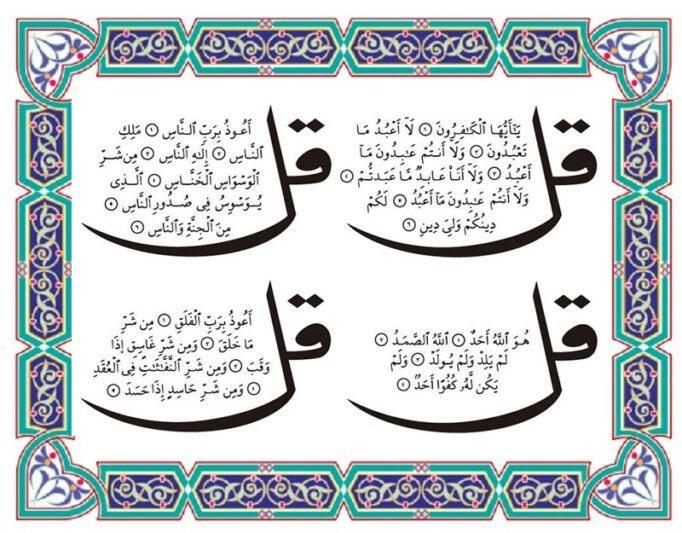 قُل
يَٰٓأَيُّهَا ٱلْكَٰفِرُونَ ١ لَآ أَعْبُدُ مَا
تَعْبُدُونَ ٢ وَلَآ أَنتُمْ عَٰبِدُونَ مَآ
أَعْبُدُ ٣ وَلَآ أَنَا۠ عَابِدٌ مَّا عَبَدتُّمْ ٤
وَلَآ أَنتُمْ عَٰبِدُونَ مَآ أَعْبُدُ ٥ لَكُمْ
دِينُكُمْ وَلِيَ دِينِ ٦
قُل
أَعُوذُ بِرَبِّ ٱلنَّاسِ ١ مَلِكِ
ٱلنَّاسِ ٢ إِلَٰهِ ٱلنَّاسِ ٣ مِن شَرِّ
ٱلْوَسْوَاسِ ٱلْخَنَّاسِ ٤ ٱلَّذِى
يُوَسْوِسُ فِى صُدُورِ ٱلنَّاسِ ٥
مِنَ ٱلْجِنَّةِ وَٱلنَّاسِ ٦
قُل
هُوَ ٱللَّهُ أَحَدٌ ١ ٱللَّهُ ٱلصَّمَدُ ٢
لَمْ يَلِدْ وَلَمْ يُولَدْ ٣ وَلَمْ
يَكُن لَّهُۥ كُفُوًا أَحَدٌۢ ٤
قُل
أَعُوذُ بِرَبِّ ٱلْفَلَقِ ١ مِن شَرِّ
مَا خَلَقَ ٢ وَمِن شَرِّ غَاسِقٍ إِذَا
وَقَبَ ٣ وَمِن شَرِّ ٱلنَّفَّٰثَٰتِ فِى ٱلْعُقَدِ
٤ وَمِن شَرِّ حَاسِدٍ إِذَا حَسَدَ ٥